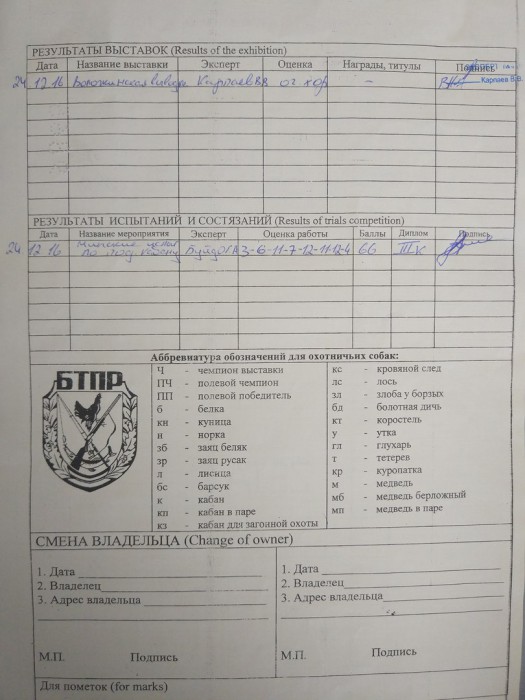 РЕЗУЛЬТАТЫ ВЫСТАВОК (Results of the exhibition)
Дата Название выставки Эксперт Оценка Награды, титулы Подпись
24 12 16 выводка Карпаев ВВ оч хор –
Карпаев В.В.
РЕЗУЛЬТАТЫ ИСПЫТАНИЙ И СОСТЯЗАНИЙ (Results of trials competition)
Дата Название мероприятия Эксперт Оценка работы Баллы Диплом Подпись
24 12 16 66
Аббревиатура обозначений для охотничьих собак:
БТПР
Ч - чемпион выставки
ПЧ - полевой чемпион
ПП - полевой победитель
б - белка
кн - куница
н - норка
зб - заяц беляк
зр - заяц русак
л - лисица
бс - барсук
к - кабан
кп - кабан в паре
кз - кабан для загонной охоты
кс - кровяной след
лс - лось
зл - злоба у борзых
бд - болотная дичь
кт - коростель
у - утка
гл - глухарь
т - тетерев
кр - куропатка
м - медведь
мб - медведь берложный
мп - медведь в паре
СМЕНА ВЛАДЕЛЬЦА (Change of owner)
1. Дата
2. Владелец
3. Адрес владельца
М.П. Подпись
1. Дата
2. Владелец
3. Адрес владельца
М.П. Подпись
Для пометок (for marks)